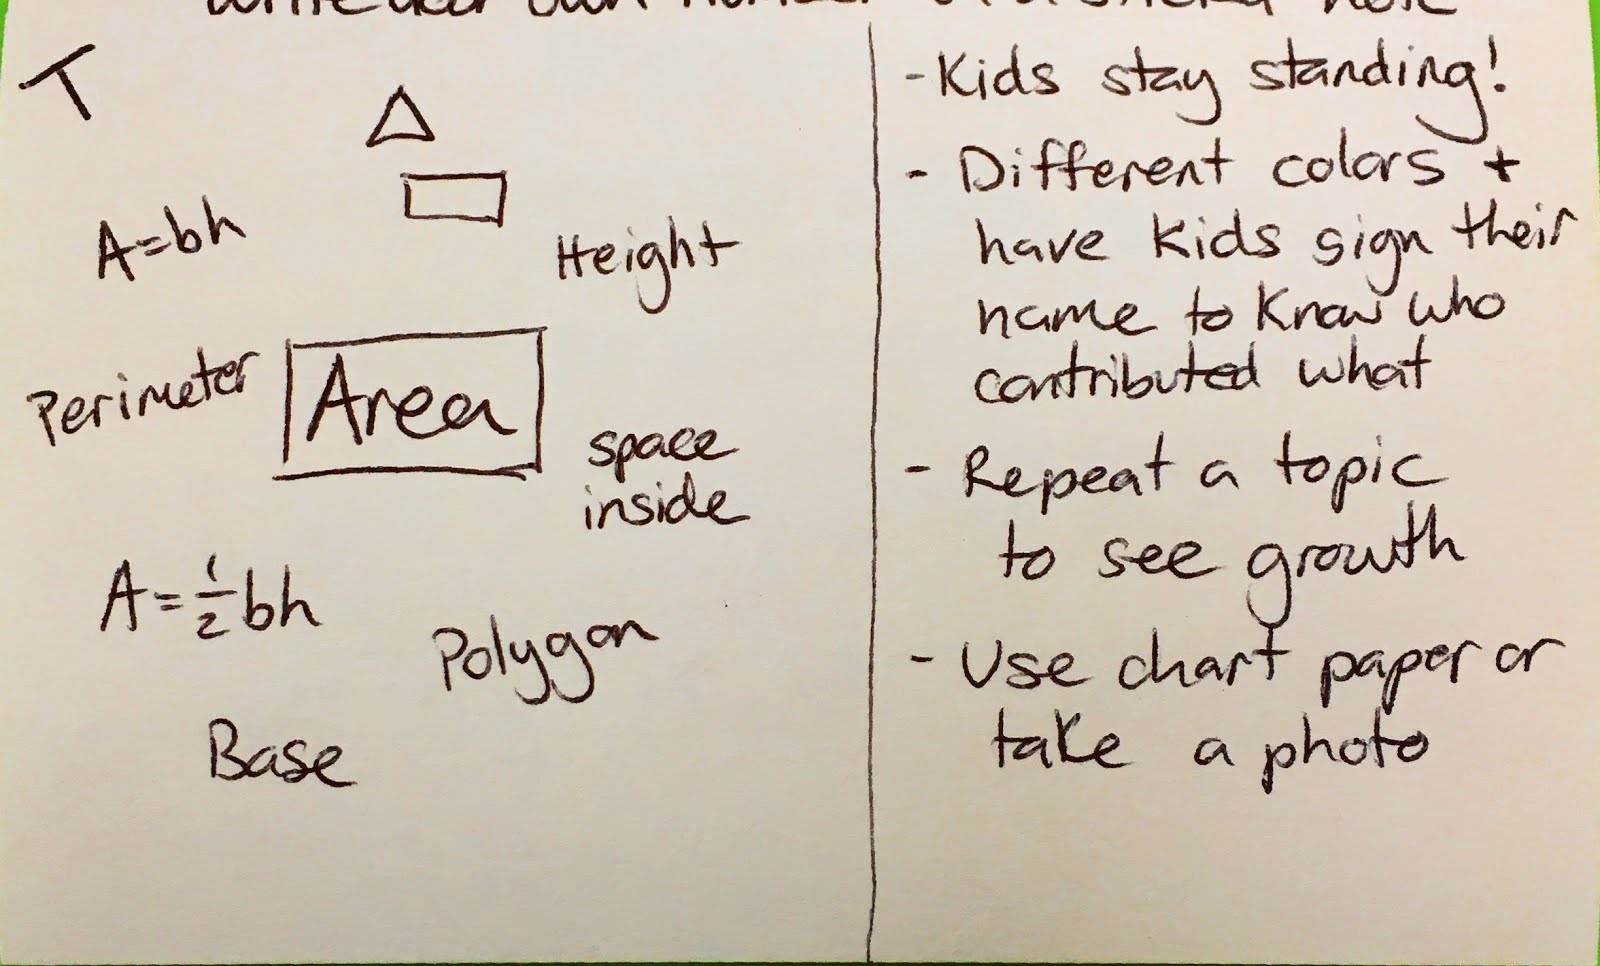 T
A=bh
Height
Perimeter
Area
space
inside
A=½bh
Polygon
Base
- Kids stay standing!
- Different colors +
have kids sign their
name to know who
contributed what
- Repeat a topic
to see growth
- Use chart paper or
take a photo